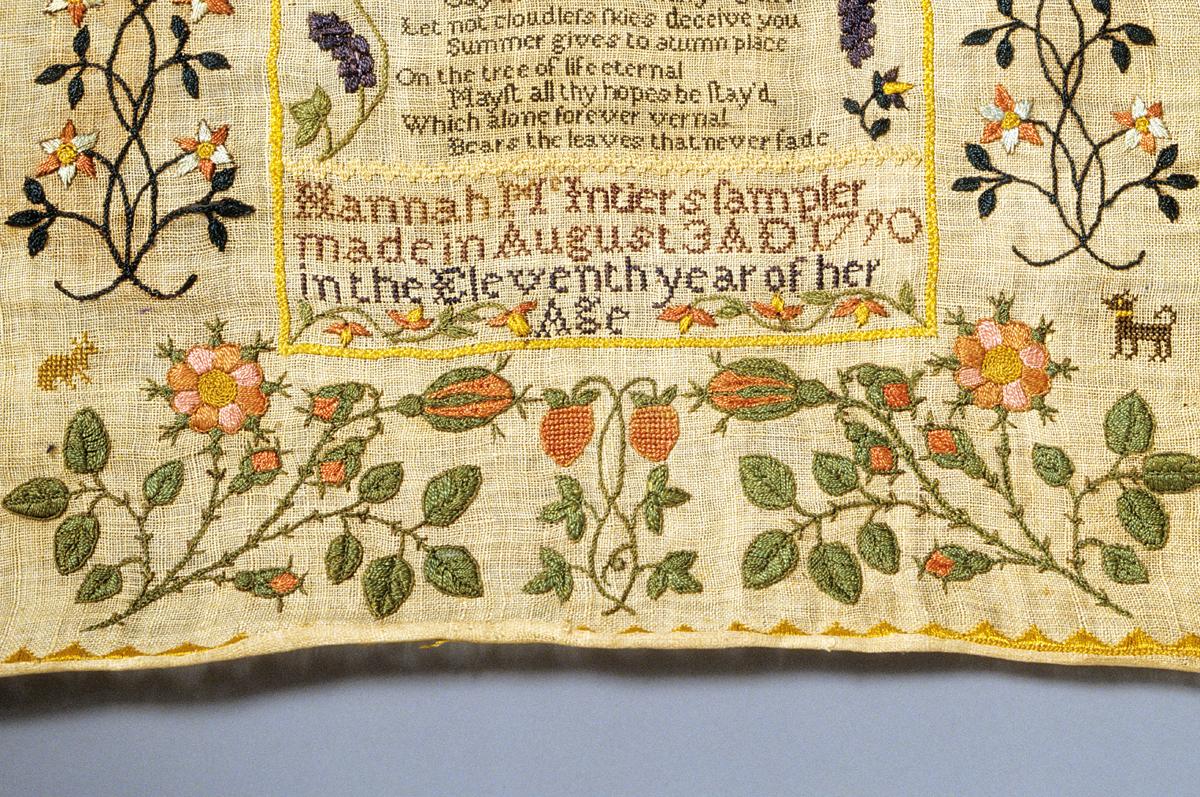 Let not cloudleſs ſkies deceive you
Summer gives to atumn place
On the tree of life eternal
Mayſt all thy hopes be ſtay'd,
Which alone forever vernal
Bears the leaves that never fade
Hannah Mc Intiers ſampler
made in August 3 A D 1790
in the Eleventh year of her
Age